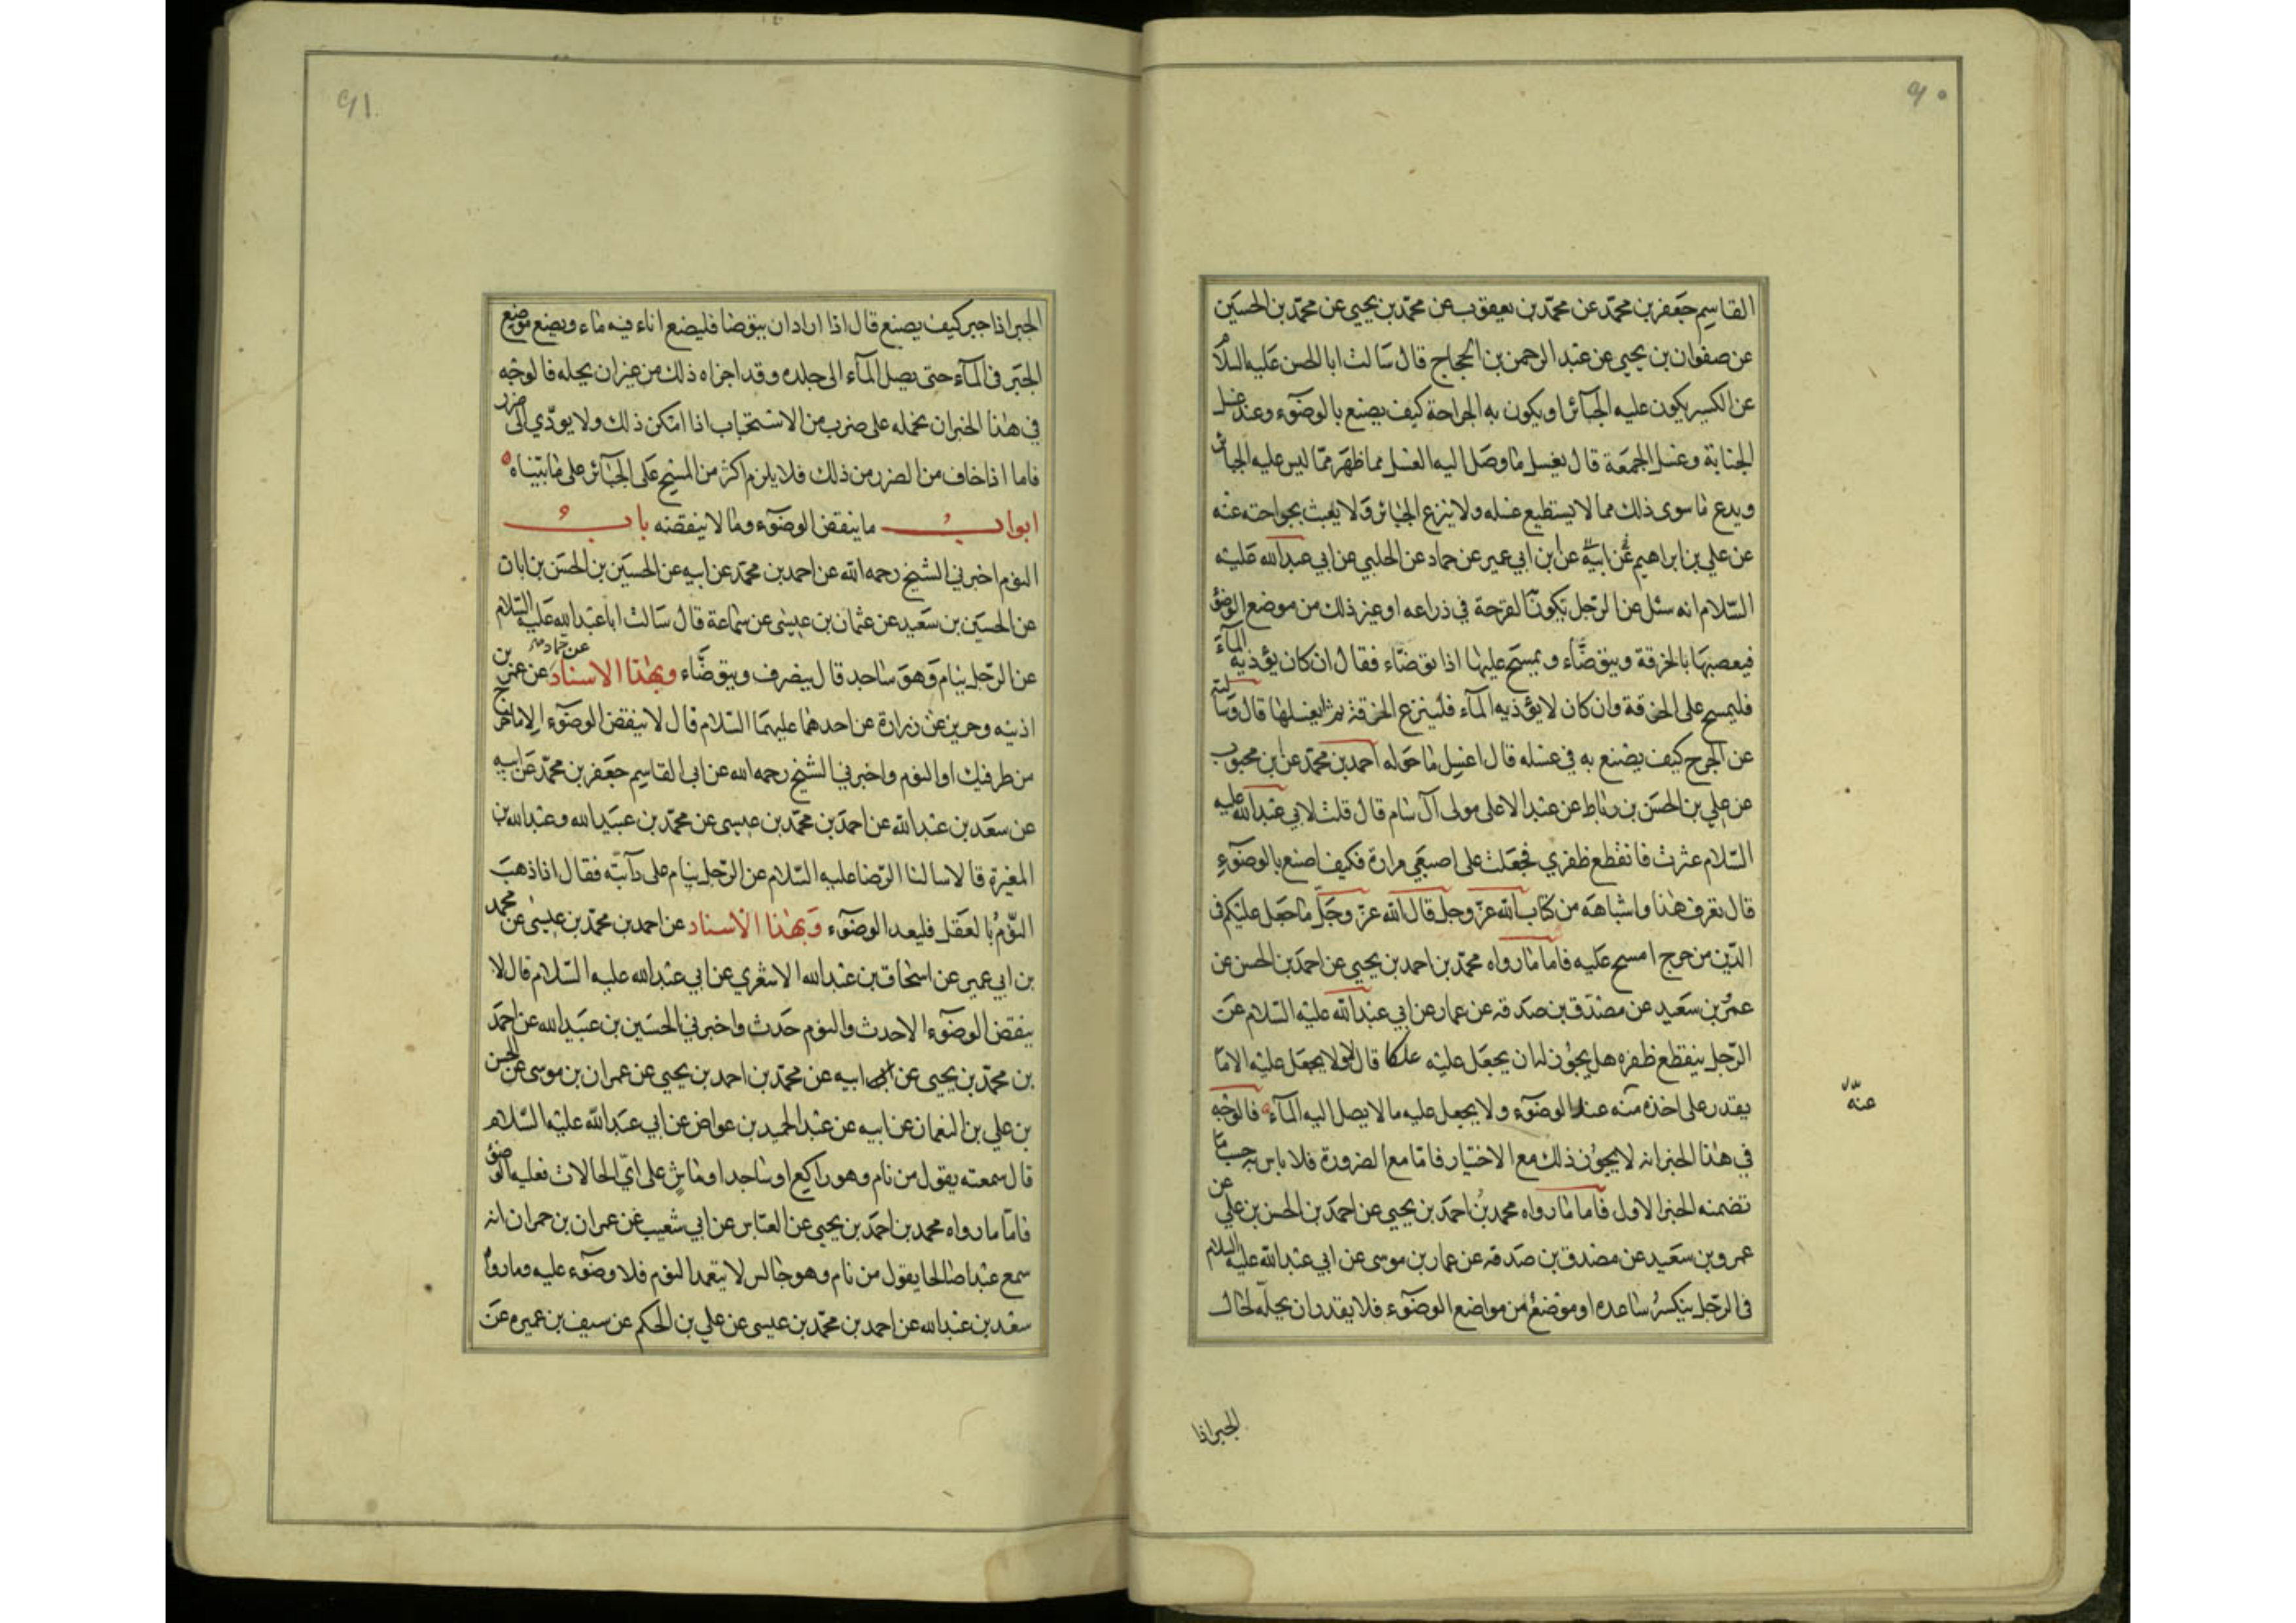 ٩٠
القاسم جعفر بن محمد عن محمد بن يعقوب عن محمد بن يحيى عن محمد بن الحسين
عن صفوان بن يحيى عن عبد الرحمن بن الحجاج قال سالت ابا الحسن عليه السلام
عن الكسير يكون عليه الجبائر او يكون به الجراحة كيف يصنع بالوضوء وعند غسل
الجنابة وغسل الجمعة قال يغسل ما وصل اليه الغسل مما ظهر مما ليس عليه الجبائر
ويدع ما سوى ذلك مما لا يستطيع غسله ولا ينزع الجبائر ولا يعبث بجراحته عنه
عن علي بن ابراهيم عن ابيه عن ابن ابي عمير عن حماد عن الحلبي عن ابي عبد الله عليه
السلام انه سئل عن الرجل تكون القرحة في ذراعه او غير ذلك من موضع الوضوء
فيعصبها بالخرقة ويتوضاء ويمسح عليها اذا توضاء فقال ان كان يؤذيه الماء
فليمسح على الخرقة وان كان لا يؤذيه الماء فلينزع الخرقة ثم ليغسلها قال وسالته
عن الجرح كيف يصنع به في غسله قال اغسل ما حوله احمد بن محمد عن ابن محبوب
عن علي بن الحسن بن رباط عن عبد الاعلى مولى آل سام قال قلت لابي عبد الله عليه
السلام عثرت فانقطع ظفري فجعلت على اصبعي مرارة فكيف اصنع بالوضوء
قال تعرف هذا واشباهه من كتاب الله عز وجل قال الله عز وجل ما جعل عليكم في
الدين من حرج امسح عليه فاما ما رواه محمد بن احمد بن يحيى عن احمد بن الحسن عن
عمر بن سعيد عن مصدق بن صدقه عن عمار عن ابي عبد الله عليه السلام عن
الرجل ينقطع ظفره هل يجوز له ان يجعل عليه علكا قال لا ولا يجعل عليه الا ما
يقدر على اخذه منه عند الوضوء ولا يجعل عليه ما لا يصل اليه الماء فالوجه
في هذا الخبر انه لا يجوز ذلك مع الاختيار فاما مع الضرورة فلا باس به حسب ما
تضمنه الخبر الاول فاما ما رواه محمد بن احمد بن يحيى عن احمد بن الحسن بن علي عن
عمرو بن سعيد عن مصدق بن صدقه عن عمار بن موسى عن ابي عبد الله عليه السلام
في الرجل ينكسر ساعده او موضع من مواضع الوضوء فلا يقدر ان يحله لحال
عنه
الجبر اذا
٩١
الجبر اذا جبر كيف يصنع قال اذا اراد ان يتوضا فليضع اناء فيه ماء ويضع موضع
الجبر في الماء حتى يصل الماء الى جلده وقد اجزاه ذلك من غير ان يحله فالوجه
في هذا الخبر ان نحمله على ضرب من الاستحباب اذا امكن ذلك ولا يودي الى ضرر
فاما اذا خاف من الضرر من ذلك فلا يلزم اكثر من المسح على الجبائر على ما بيناه
ابواب ما ينقض الوضوء وما لا ينقضه باب
النوم اخبرني الشيخ رحمه الله عن احمد بن محمد عن ابيه عن الحسين بن الحسن بن ابان
عن الحسين بن سعيد عن عثمان بن عيسى عن سماعة قال سالت ابا عبد الله عليه السلام
عن الرجل ينام وهو ساجد قال ينصرف ويتوضاء وبهذا الاسناد عن حماد عن عمر بن
اذينه وحريز عن زرارة عن احدهما عليهما السلام قال لا ينقض الوضوء الا ما خرج
من طرفيك او النوم واخبرني الشيخ رحمه الله عن ابي القاسم جعفر بن محمد عن ابيه
عن سعد بن عبد الله عن احمد بن محمد بن عيسى عن محمد بن عبيد الله وعبد الله بن
المغيرة قالا سالنا الرضا عليه السلام عن الرجل ينام على دابته فقال اذا ذهب
النوم بالعقل فليعد الوضوء وبهذا الاسناد عن احمد بن محمد بن عيسى عن محمد
بن ابي عمير عن اسحاق بن عبد الله الاشعري عن ابي عبد الله عليه السلام قال لا
ينقض الوضوء الا حدث والنوم حدث واخبرني الحسين بن عبيد الله عن احمد
بن محمد بن يحيى عن ابيه عن محمد بن احمد بن يحيى عن عمران بن موسى عن الحسن
بن علي بن النعمان عن ابيه عن عبد الحميد بن عواض عن ابي عبد الله عليه السلام
قال سمعته يقول من نام وهو راكع او ساجد او ماش على اي الحالات فعليه الوضوء
فاما ما رواه محمد بن احمد بن يحيى عن العباس عن ابي شعيب عن عمران بن حمران انه
سمع عبدا صالحا يقول من نام وهو جالس لا يتعمد النوم فلا وضوء عليه وما رواه
سعد بن عبد الله عن احمد بن محمد بن عيسى عن علي بن الحكم عن سيف بن عميره عن